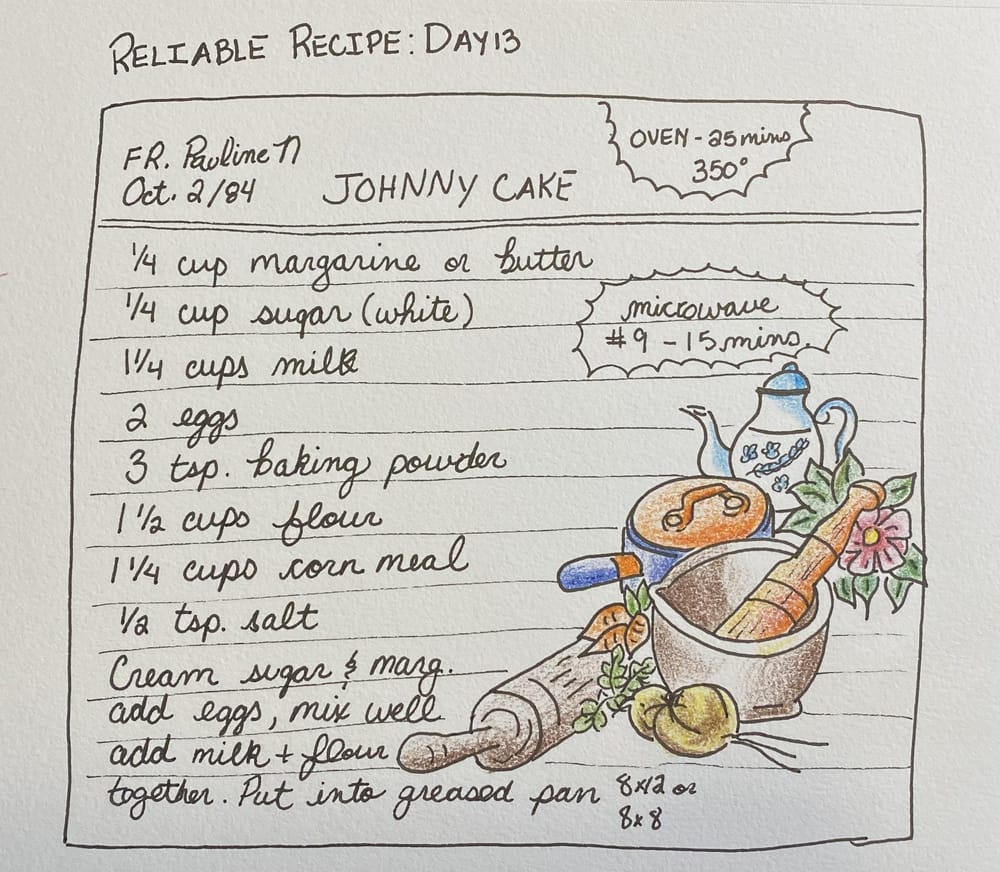 RELIABLE RECIPE: DAY 13
FR. Pauline N
Oct. 2/84
JOHNNY CAKE
OVEN - 25 mins
350°
1/4 cup margarine or butter
1/4 cup sugar (white)
microwave
#9 - 15 mins.
1 1/4 cups milk
2 eggs
3 tsp. baking powder
1 1/2 cups flour
1 1/4 cups corn meal
1/2 tsp. salt
Cream sugar & marg.
add eggs, mix well
add milk + flour
together. Put into greased pan 8x12 or
8x8